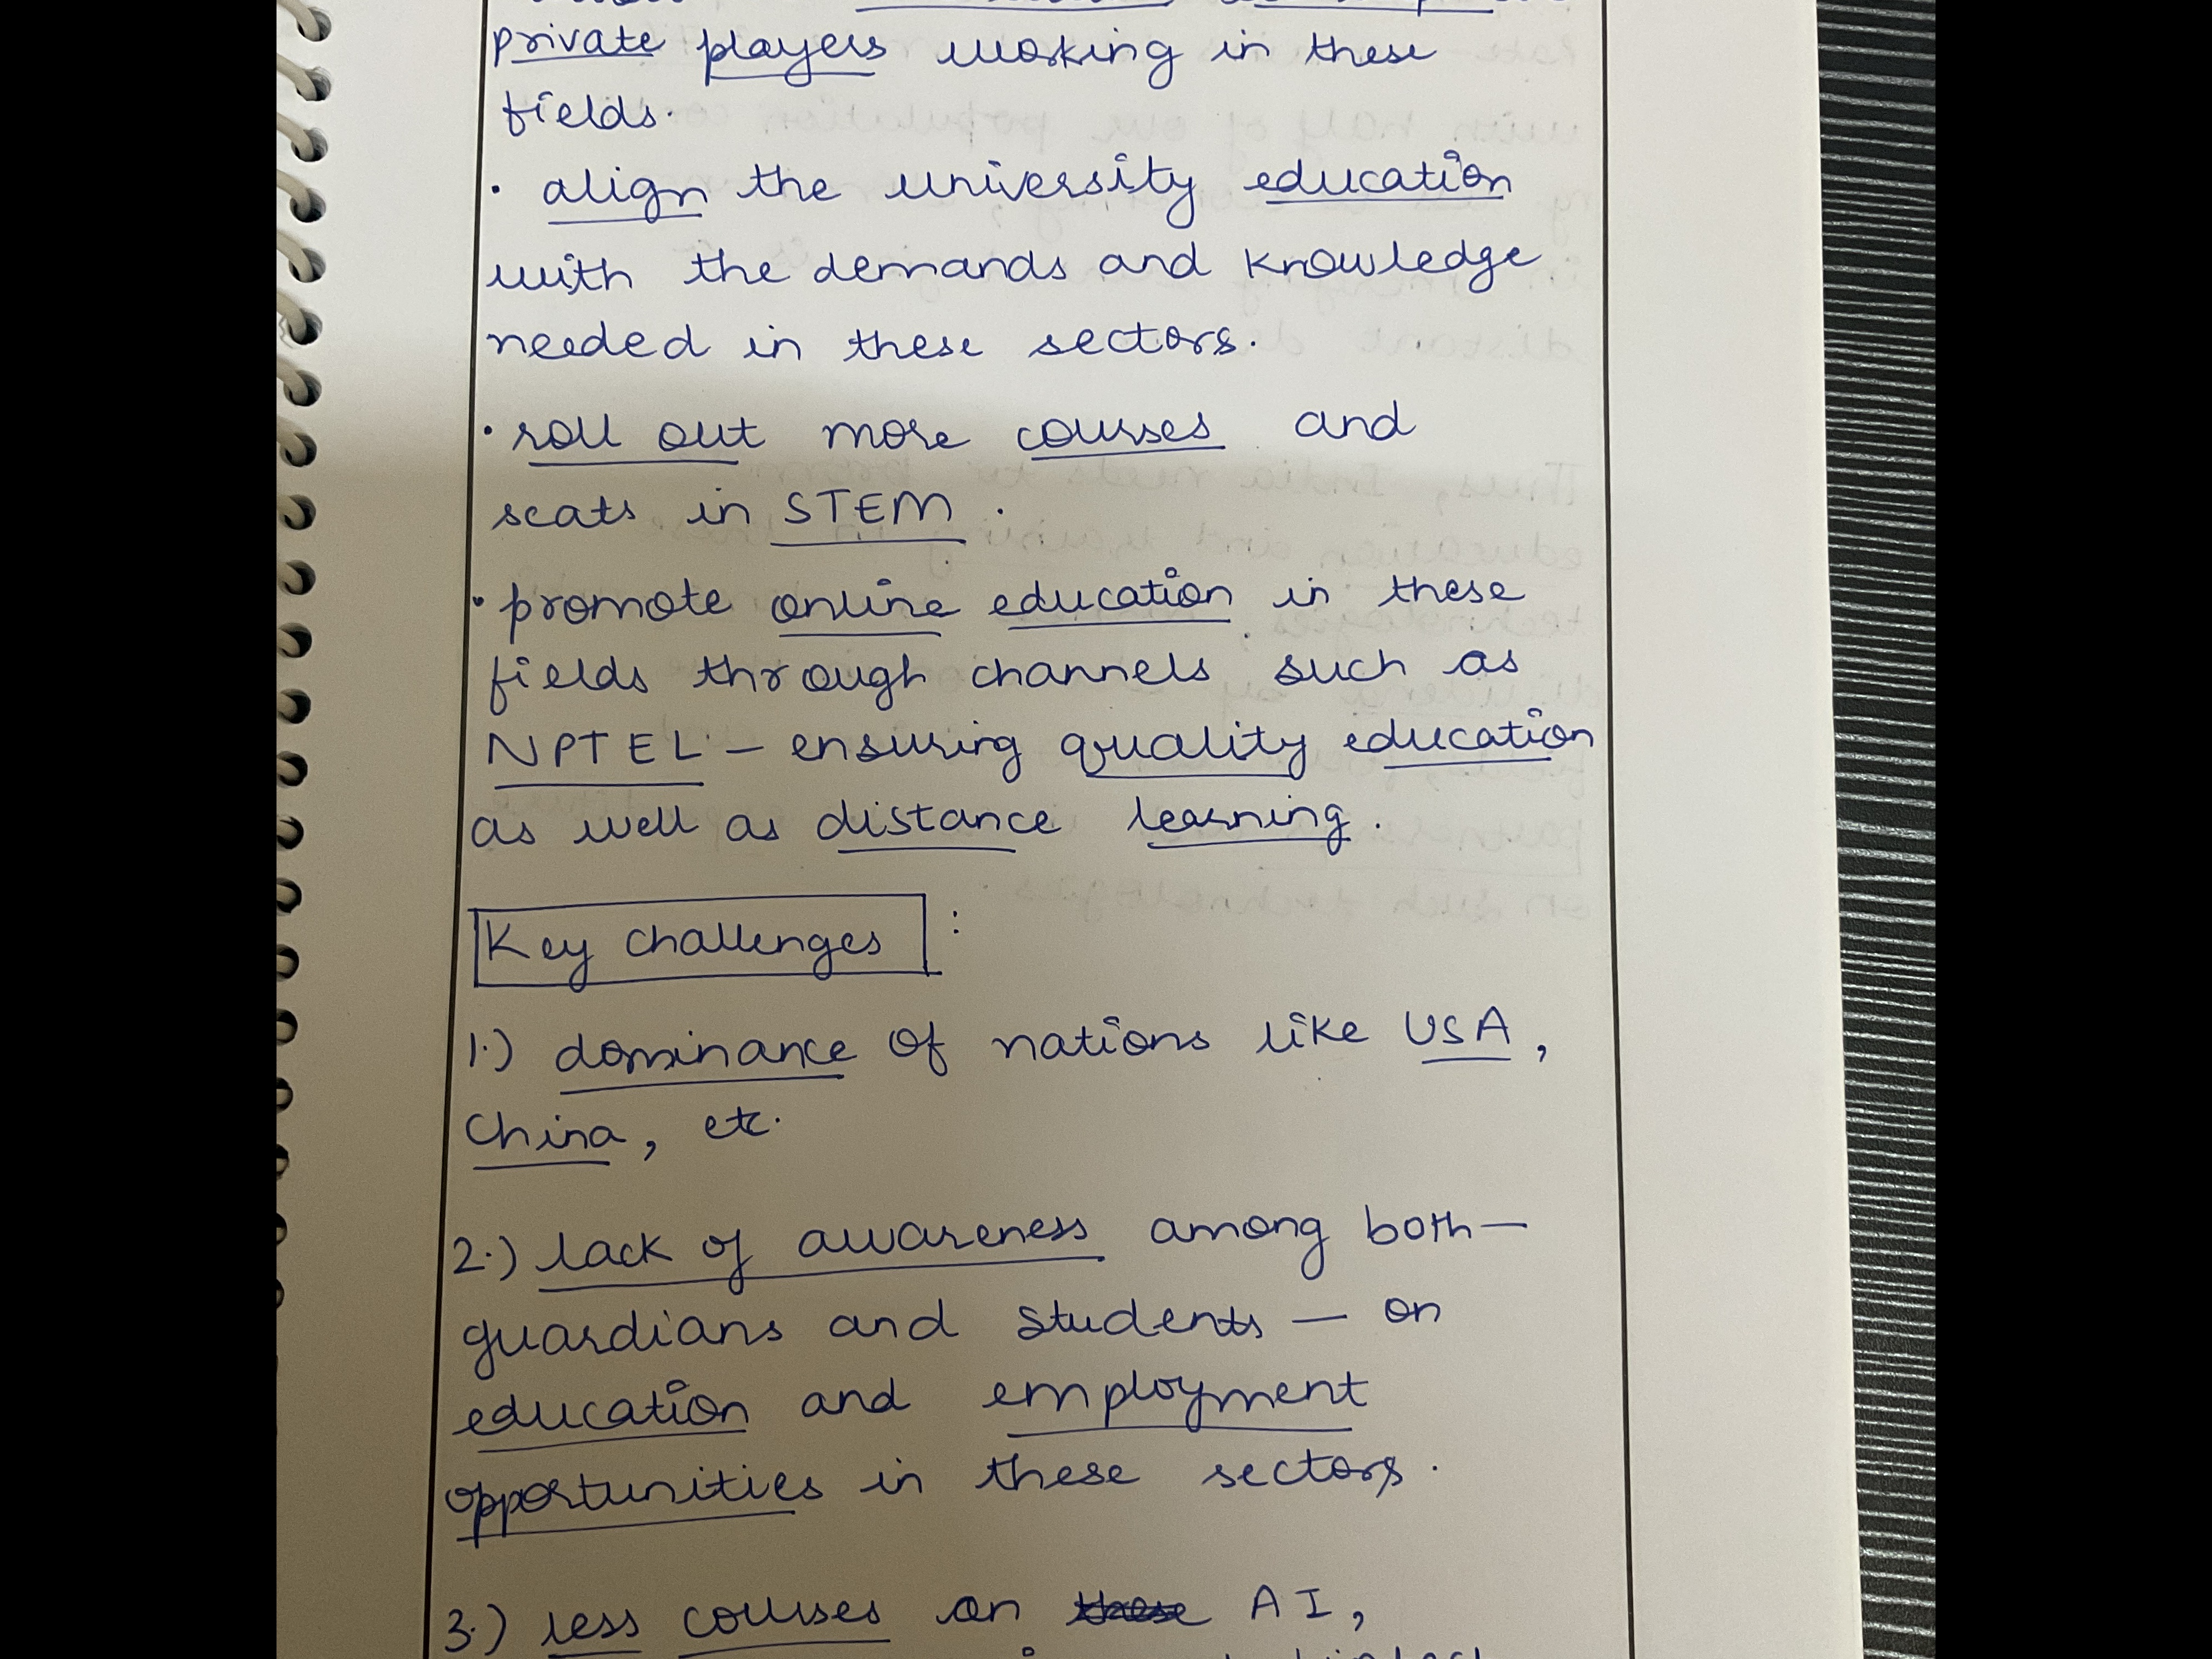 private players working in these
fields.
• align the university education
with the demands and knowledge
needed in these sectors.
• roll out more courses and
seats in STEM.
• promote online education in these
fields through channels such as
NPTEL – ensuring quality education
as well as distance learning.
Key challenges :
1.) dominance of nations like USA,
China, etc.
2.) lack of awareness among both –
guardians and students – on
education and employment
opportunities in these sectors.
3.) less courses on these AI,